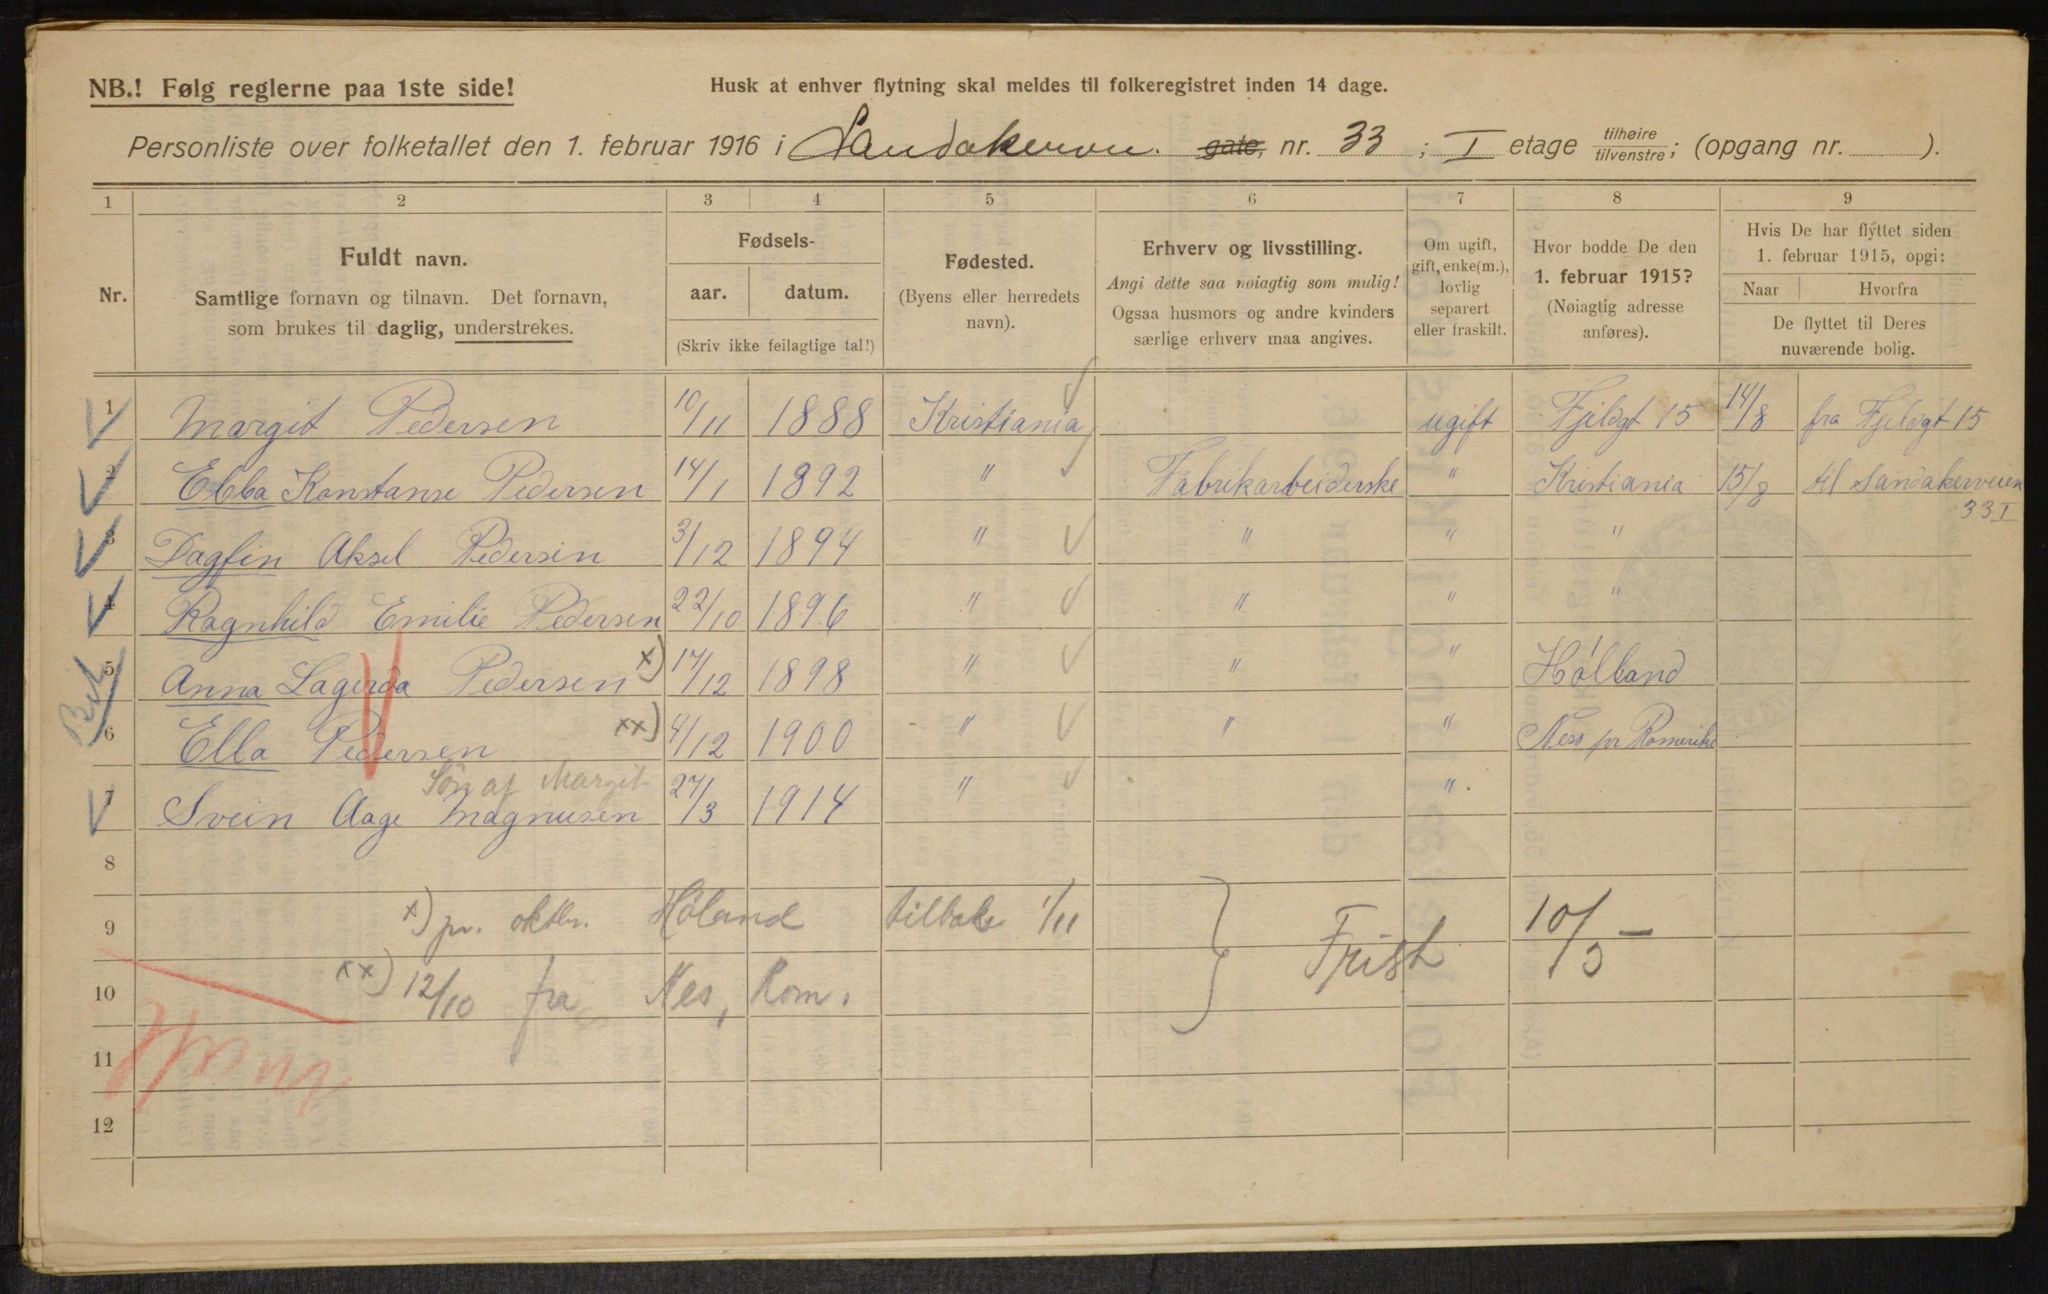 NB.! Følg reglerne paa 1ste side!
Husk at enhver flytning skal meldes til folkeregistret inden 14 dage.
Personliste over folketallet den 1. februar 1916 i Sandakervn. gate, nr. 33 ; I etage tilhøire/tilvenstre; (opgang nr. ).
1 2 3 4 5 6 7 8 9
Nr.
Fuldt navn.
Samtlige fornavn og tilnavn. Det fornavn,
som brukes til daglig, understrekes.
Fødsels-
aar. datum.
(Skriv ikke feilagtige tal!)
Fødested.
(Byens eller herredets
navn).
Erhverv og livsstilling.
Angi dette saa nøiagtig som mulig!
Ogsaa husmors og andre kvinders
særlige erhverv maa angives.
Om ugift,
gift, enke(m.),
lovlig
separert
eller fraskilt.
Hvor bodde De den
1. februar 1915?
(Nøiagtig adresse
anføres).
Hvis De har flyttet siden
1. februar 1915, opgi:
Naar Hvorfra
De flyttet til Deres
nuværende bolig.
1 Margit Pedersen 10/11 1888 Kristiania ugift Fjeldgt 15 14/8 fra Fjeldgt 15
2 Ebba Konstanse Pedersen 14/1 1892 " Fabrikarbeiderske " Kristiania 15/8 til Sandakerveien
33 I
3 Dagfin Aksel Pedersen 3/12 1894 " " " "
4 Ragnhild Emilie Pedersen 22/10 1896 " " " "
5 Anna Lagerda Pedersen x) 17/12 1898 " " " Hølland
6 Ella Pedersen xx) 4/12 1900 " " " Ness pr Romerike
Søn af Margit
7 Svein Aage Magnusen 27/3 1914 " "
8
9 x) pr. oktbr. Høland tilbake 1/11
Frist 10/3 -
10 xx) 12/10 fra Nes, Rom.
11
12